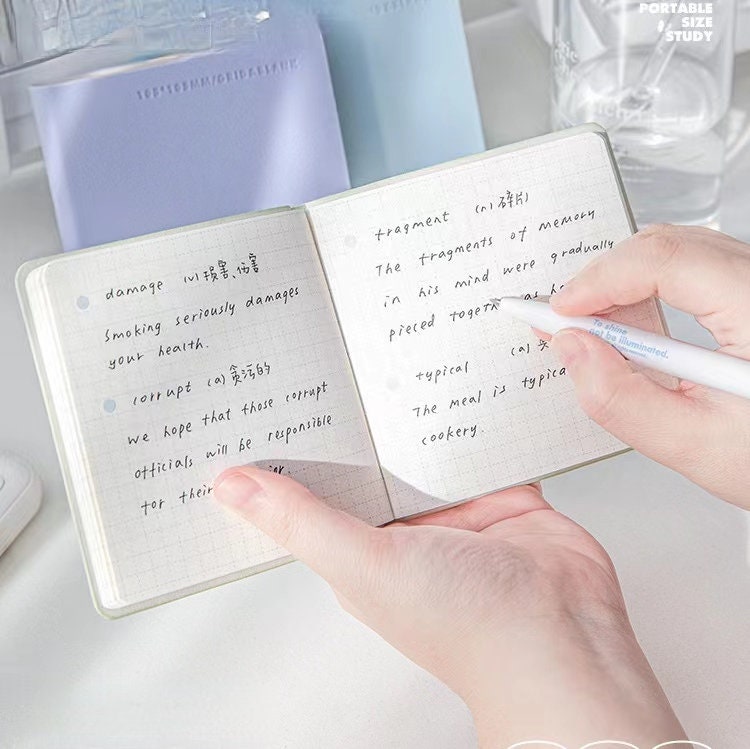 PORTABLE
SIZE
STUDY
105*105MM/GRID&BLANK
damage (v) 损害、伤害
Smoking seriously damages
your health.
corrupt (a) 贪污的
We hope that those corrupt
officials will be responsible
for their
fragment (n) 碎片
The fragments of memory
in his mind were gradually
pieced together as
typical (a)
The meal is typical
cookery.
To shine
not be illuminated.